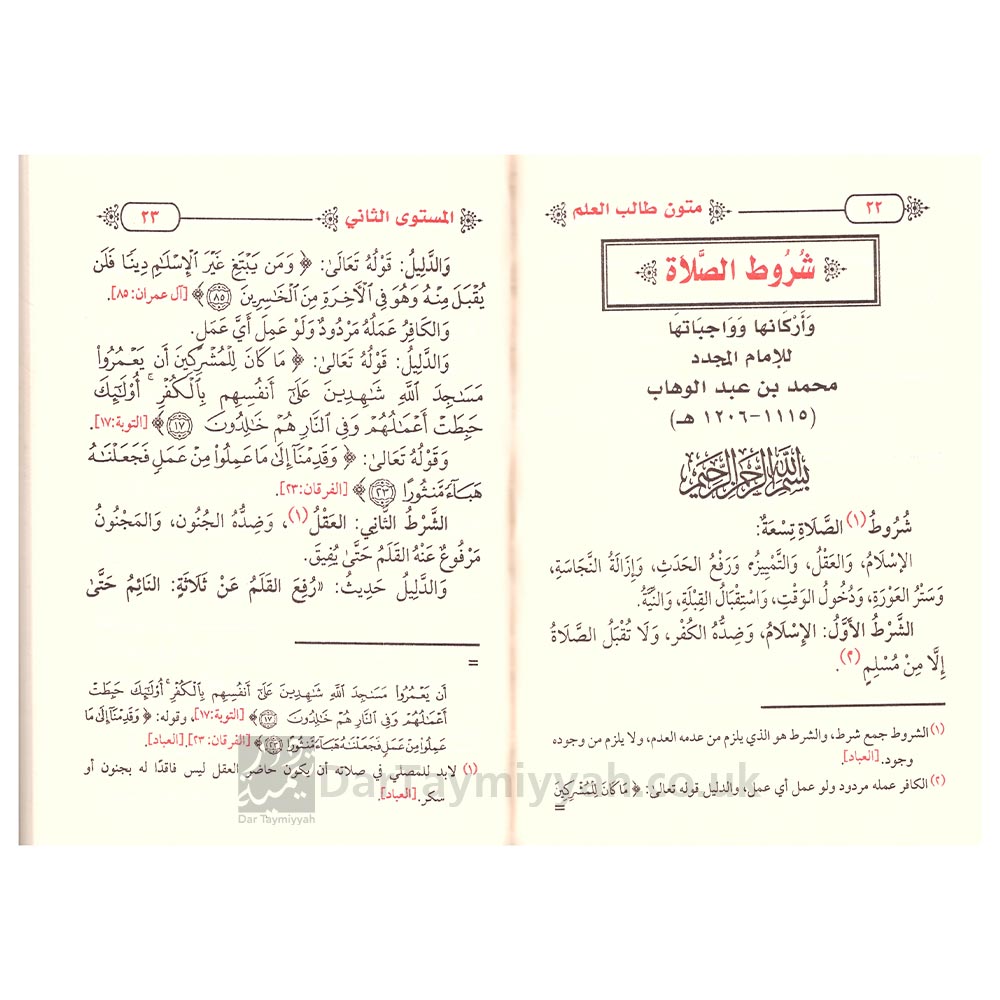 ٢٢
متون طالب العلم
شُرُوط الصَّلَاة
وَأَرْكَانهَا وَوَاجِبَاتهَا
للإمام المجدد
محمد بن عبد الوهاب
(١١١٥-١٢٠٦ هـ)
بِسْمِ اللَّهِ الرَّحْمَنِ الرَّحِيمِ
شُرُوطُ (١) الصَّلَاةِ تِسْعَةٌ:
الإِسْلَامُ، وَالعَقْلُ، وَالتَّمْيِيزُ، وَرَفْعُ الحَدَثِ، وَإِزَالَةُ النَّجَاسَةِ،
وَسَتْرُ العَوْرَةِ، وَدُخُولُ الوَقْتِ، وَاسْتِقْبَالُ القِبْلَةِ، وَالنِّيَّةُ.
الشَّرْطُ الأَوَّلُ: الإِسْلَامُ، وَضِدُّهُ الكُفْر، وَلَا تُقْبَلُ الصَّلَاةُ
إِلَّا مِنْ مُسْلِمٍ (٢).
(١) الشروط جمع شرط، والشرط هو الذي يلزم من عدمه العدم، ولا يلزم من وجوده
وجود. [العباد]
(٢) الكافر عمله مردود ولو عمل أي عمل، والدليل قوله تعالى: ﴿ مَا كَانَ لِلْمُشْرِكِينَ
=
المستوى الثاني
٢٣
وَالدَّلِيلُ: قَوْلُهُ تَعَالَى: ﴿ وَمَن يَبْتَغِ غَيْرَ الْإِسْلَامِ دِينًا فَلَن
يُقْبَلَ مِنْهُ وَهُوَ فِي الْآخِرَةِ مِنَ الْخَاسِرِينَ ٨٥ ﴾ [آل عمران: ٨٥].
وَالكَافِرُ عَمَلُهُ مَرْدُودٌ وَلَو عَمِلَ أَيَّ عَمَلٍ.
وَالدَّلِيلُ: قَوْلُهُ تَعَالَى: ﴿ مَا كَانَ لِلْمُشْرِكِينَ أَن يَعْمُرُوا
مَسَاجِدَ اللَّهِ شَاهِدِينَ عَلَىٰ أَنفُسِهِم بِالْكُفْرِ ۚ أُولَٰئِكَ
حَبِطَتْ أَعْمَالُهُمْ وَفِي النَّارِ هُمْ خَالِدُونَ ١٧ ﴾ [التوبة: ١٧].
وَقَوْلُهُ تَعَالَى: ﴿ وَقَدِمْنَا إِلَىٰ مَا عَمِلُوا مِنْ عَمَلٍ فَجَعَلْنَاهُ
هَبَاءً مَّنثُورًا ٢٣ ﴾ [الفرقان: ٢٣].
الشَّرْطُ الثَّانِي: العَقْلُ (١)، وَضِدُّهُ الجُنُون، وَالمَجْنُونُ
مَرْفُوعٌ عَنْهُ القَلَمُ حَتَّى يُفِيقَ.
وَالدَّلِيلُ حَدِيثُ: «رُفِعَ القَلَمُ عَنْ ثَلَاثَةٍ: النَّائِمُ حَتَّى
=
أَن يَعْمُرُوا مَسَاجِدَ اللَّهِ شَاهِدِينَ عَلَىٰ أَنفُسِهِم بِالْكُفْرِ ۚ أُولَٰئِكَ حَبِطَتْ
أَعْمَالُهُمْ وَفِي النَّارِ هُمْ خَالِدُونَ ١٧ ﴾ [التوبة: ١٧]، وقوله: ﴿ وَقَدِمْنَا إِلَىٰ مَا
عَمِلُوا مِنْ عَمَلٍ فَجَعَلْنَاهُ هَبَاءً مَّنثُورًا ٢٣ ﴾ [الفرقان: ٢٣]. [العباد].
(١) لابد للمصلي في صلاته أن يكون حاضر العقل ليس فاقدًا له بجنون أو
سكر. [العباد].
DarTaymiyyah.co.uk
Dar Taymiyyah